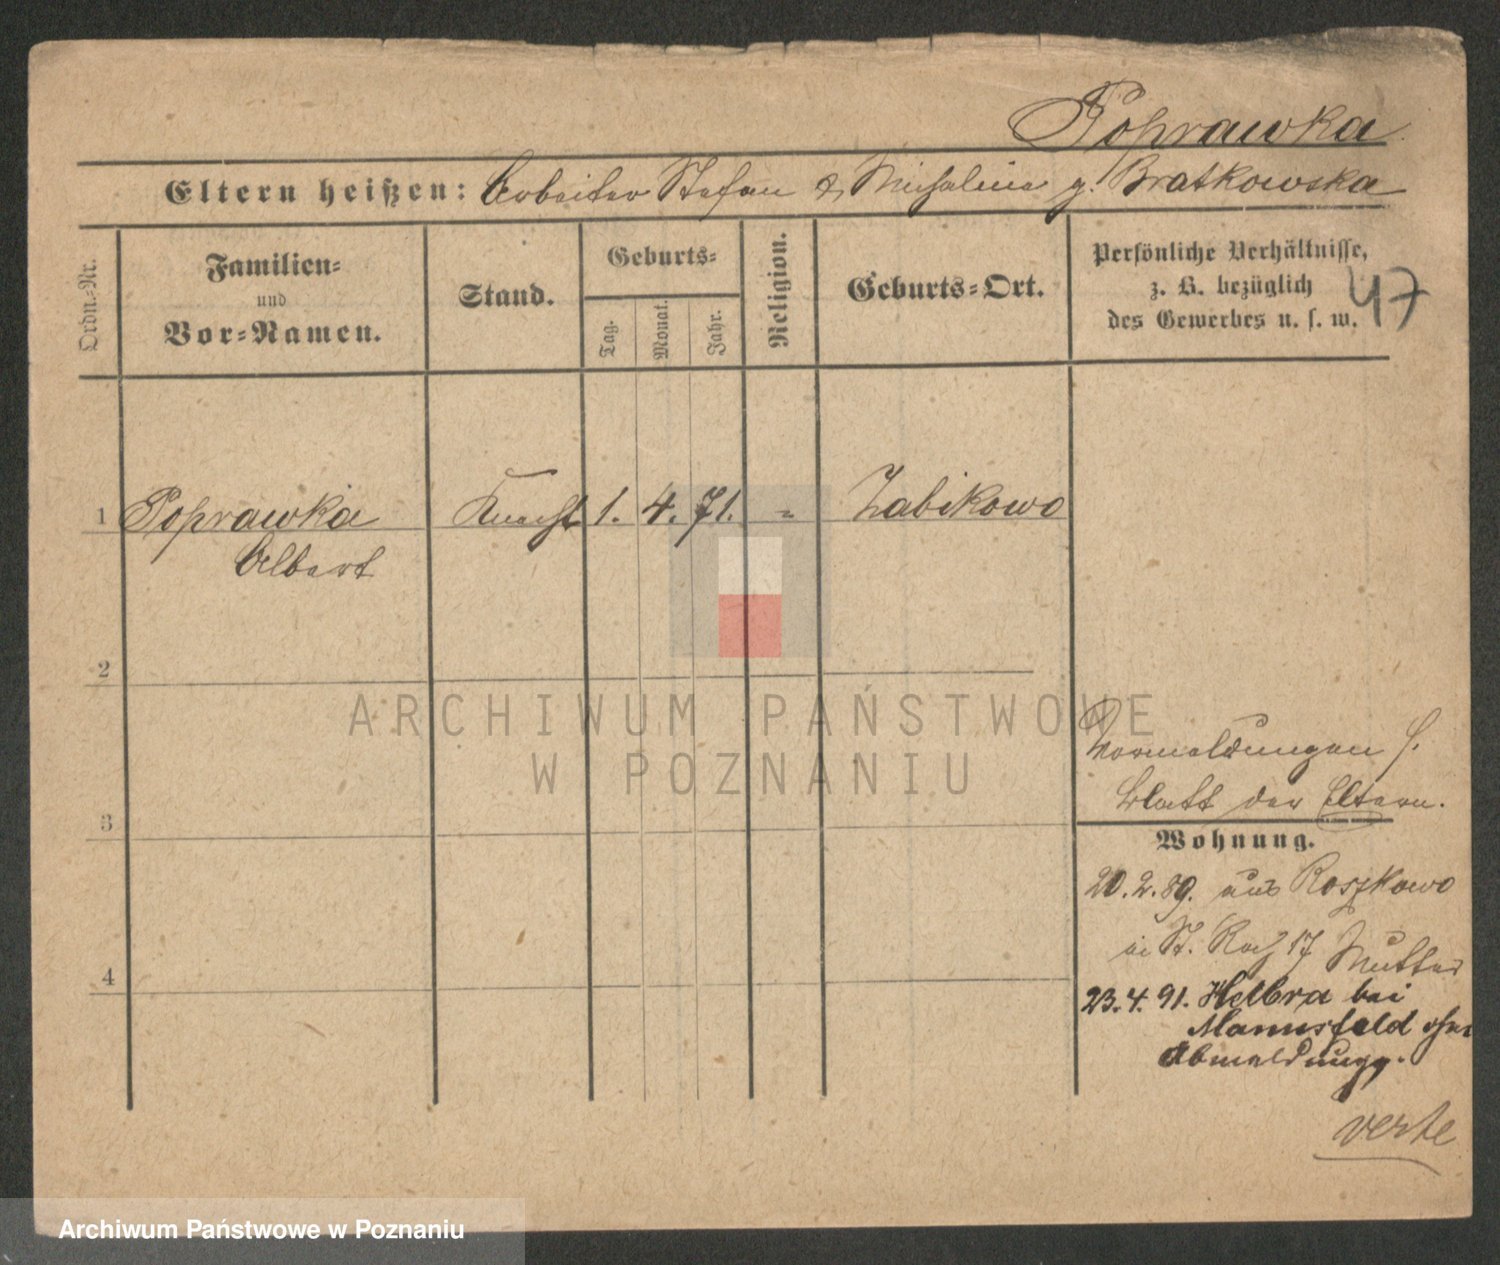 Poprawka
Eltern heißen: Arbeiter Stefan & Michalina g. Bratkowska
Ordn.-Nr.
Familien-
und
Vor-Namen.
Stand.
Geburts-
Tag.
Monat.
Jahr.
Religion.
Geburts-Ort.
Persönliche Verhältnisse,
z. B. bezüglich
des Gewerbes u. s. w.
47
1 Poprawka Knecht 1. 4. 71. " Zabikowo
Albert
2
3
4
Vormeldungen s.
Blatt der Eltern.
Wohnung.
20.2.89. aus Roszkowo
St. Roch 17 Mutter
23.4.91. Helbra bei
Mannsfeld ohne
Abmeldung.
verte
ARCHIWUM PAŃSTWOWE
W POZNANIU
Archiwum Państwowe w Poznaniu